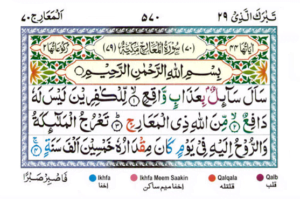 تَبٰرَكَ الَّذِىْ ٢٩ ٥٧٠ اَلْمَعَارِج ٧٠
اٰيَاتُهَا ٤٤ (٧٠) سُوْرَةُ الْمَعَارِجِ مَكِّيَّةٌ (٧٩) رُكُوْعَاتُهَا ٢
بِسْمِ اللّٰهِ الرَّحْمٰنِ الرَّحِيْمِ
سَاَلَ سَآئِلٌۢ بِعَذَابٍ وَّاقِعٍ ۙ‏ ١ لِّلْكٰفِرِيْنَ لَيْسَ لَهٗ
دَافِعٌ ۙ‏ ٢ مِّنَ اللّٰهِ ذِى الْمَعَارِجِ ٣ تَعْرُجُ الْمَلٰٓئِكَةُ
وَالرُّوْحُ اِلَيْهِ فِىْ يَوْمٍ كَانَ مِقْدَارُهٗ خَمْسِيْنَ اَلْفَ سَنَةٍ ٤ فَاصْبِرْ صَبْرًا
Ikhfa اخفا Ikhfa Meem Saakin اخفا میم ساکن Qalqala قلقله Qalb قلب